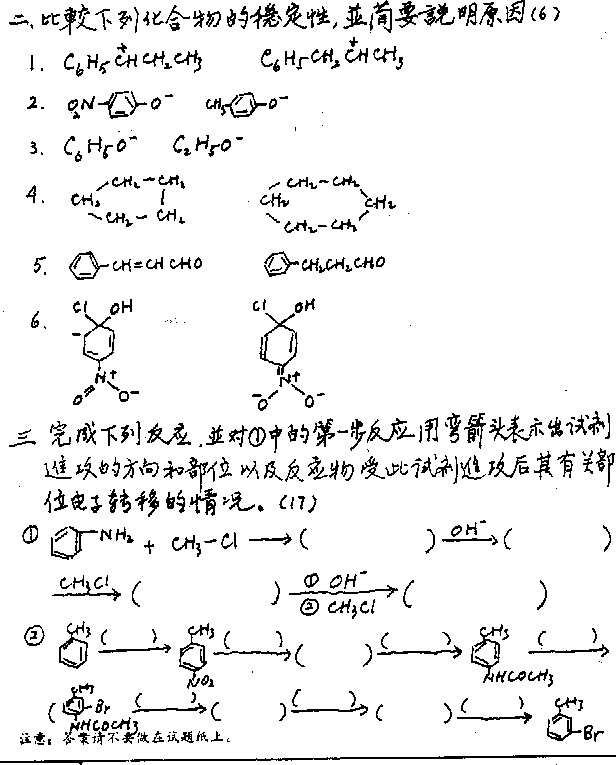 二、比較下列化合物的穩定性,並简要説明原因(6)
1. C6H5CHCH2CH3 + C6H5CH2CHCH3 +
2. O2N- -O- CH3- -O-
3. C6H5O- C2H5O-
4. CH2 CH2-CH2 CH2-CH2 CH2 CH2-CH2 CH2 CH2-CH2
5. -CH=CHCHO -CH2CH2CHO
6. Cl OH - N+ O O- Cl OH N+ -O O-
三 完成下列反应,並对①中的第一步反应用弯箭头表示出试剂
進攻的方向和部位以及反应物受此试剂進攻后其有关部
位电子转移的情况。(17)
① -NH2 + CH3-Cl ( ) OH- ( )
CH3Cl ( ) ① OH- ② CH3Cl ( )
② CH3 ( ) CH3 NO2 ( ) ( ) ( ) CH3 NHCOCH3 ( )
( CH3 Br NHCOCH3 ( ) ( ) ( ) ( ) ( ) CH3 Br
注意:答案请不要做在试题纸上。